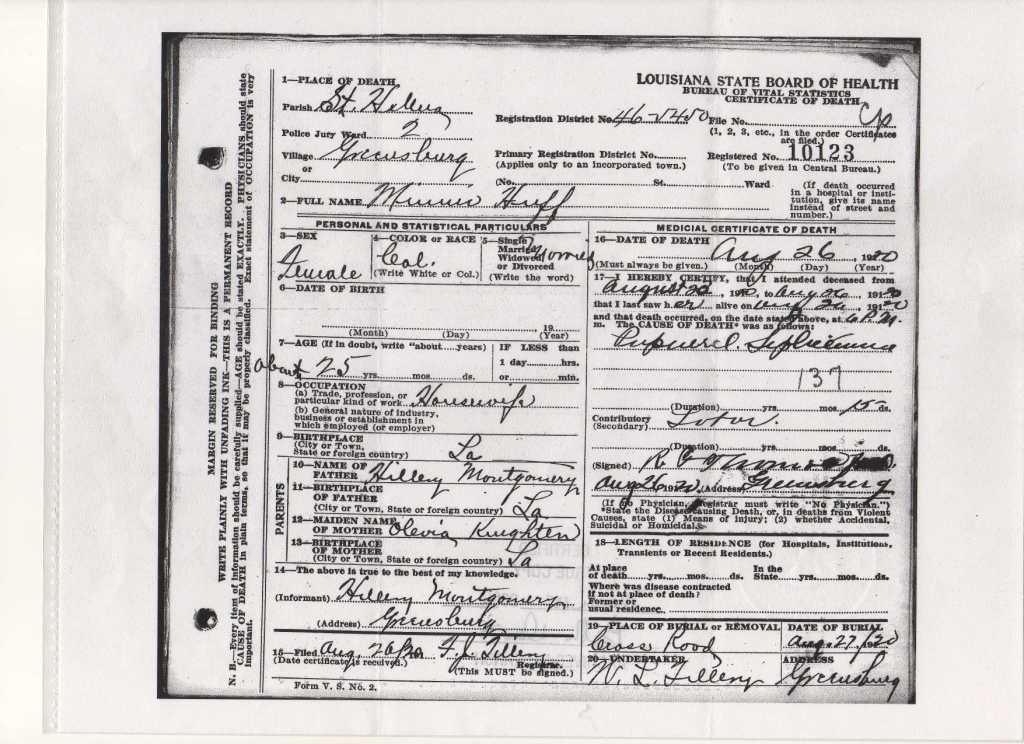 LOUISIANA STATE BOARD OF HEALTH
BUREAU OF VITAL STATISTICS
CERTIFICATE OF DEATH
1—PLACE OF DEATH
Parish St. Helena
Police Jury Ward 2
Village Greensburg
or
City
Registration District No. 46-5450 File No.
(1, 2, 3, etc., in the order Certificates are filed.)
Primary Registration District No. Registered No. 10123
(Applies only to an incorporated town.) (To be given in Central Bureau.)
(No. St. Ward
(If death occurred in a hospital or institution, give its name instead of street and number.)
2—FULL NAME Minnie Huff
PERSONAL AND STATISTICAL PARTICULARS
3—SEX
Female
4—COLOR or RACE
Col.
(Write White or Col.)
5—Single
Married
Widowed
or Divorced
(Write the word)
6—DATE OF BIRTH
19
(Month) (Day) (Year)
7—AGE (If in doubt, write "about.....years)
about 25 yrs. mos. ds.
IF LESS than
1 day hrs.
or min.
8—OCCUPATION
(a) Trade, profession, or
particular kind of work Housewife
(b) General nature of industry,
business or establishment in
which employed (or employer)
9—BIRTHPLACE
(City or Town,
State or foreign country) La
PARENTS
10—NAME OF
FATHER Hillery Montgomery
11—BIRTHPLACE
OF FATHER
(City or Town, State or foreign country) La
12—MAIDEN NAME
OF MOTHER Olevia Knighten
13—BIRTHPLACE
OF MOTHER
(City or Town, State or foreign country) La
14—The above is true to the best of my knowledge.
(Informant) Hillery Montgomery
(Address) Greensburg
15—Filed Aug. 26/20 F. J. Tillery
(Date certificate is received.) Registrar.
(This MUST be signed.)
Form V. S. No. 2.
MEDICAL CERTIFICATE OF DEATH
16—DATE OF DEATH Aug 26, 1920
(Must always be given.) (Month) (Day) (Year)
17—I HEREBY CERTIFY, that I attended deceased from
August 22, 1920, to Aug 26 1920
that I last saw her alive on Aug 26 1920
and that death occurred, on the date stated above, at 6 P.M.
m. The CAUSE OF DEATH* was as follows:
137
(Duration) yrs. mos. 15 ds.
Contributory
(Secondary)
(Duration) yrs. mos. ds.
(Signed)
Aug 26 20 (Address) Greensburg
(If no Physician, Registrar must write "No Physician.")
*State the Disease Causing Death, or, in deaths from Violent
Causes, state (1) Means of injury; (2) whether Accidental,
Suicidal or Homicidal.
18—LENGTH OF RESIDENCE (for Hospitals, Institutions,
Transients or Recent Residents.)
At place
of death yrs. mos. ds.
In the
State yrs. mos. ds.
Where was disease contracted
if not at place of death?
Former or
usual residence
19—PLACE OF BURIAL or REMOVAL
Cross Rood
DATE OF BURIAL
Aug. 27/20
20—UNDERTAKER
W. L. Tillery
ADDRESS
Greensburg
MARGIN RESERVED FOR BINDING
WRITE PLAINLY WITH UNFADING INK—THIS IS A PERMANENT RECORD
N. B.—Every item of information should be carefully supplied—AGE should be stated EXACTLY. PHYSICIANS should state
CAUSE OF DEATH in plain terms, so that it may be properly classified. Exact statement of OCCUPATION is very
important.